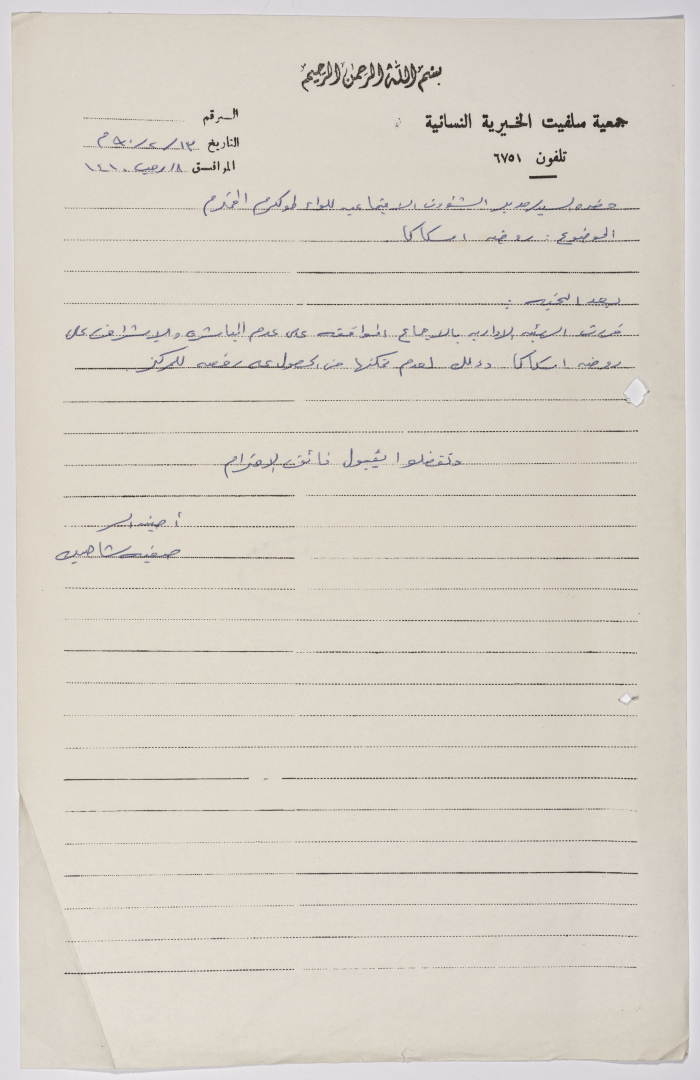 بسم الله الرحمن الرحيم
جمعية سلفيت الخيرية النسائية
تلفون ٦٧٥١
الرقم
التاريخ ١٣/٢/٩٠م
الموافق ١٨/رجب/١٤١٠
حضرة السيد مدير الشؤون الاجتماعية للواء طولكرم المحترم
الموضوع : روضة اسكاكا
بعد التحية :
قررت الهيئة الادارية بالاجماع الموافقة على عدم المباشرة والاشراف على
روضة اسكاكا وذلك لعدم تمكنها من الحصول على رخصة للمركز
وتفضلوا بقبول فائق الاحترام
أمينة السر
صفية شاهين